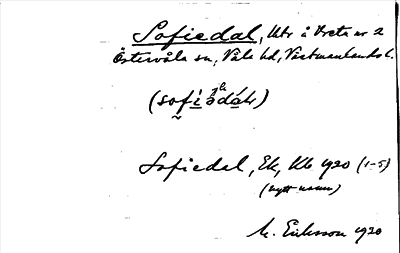 Sofiedal, Utr å Vreta nr 2
Östervåla sn, Våla hd, Västmanlands l.
Sofiedal, Ek, Kb 1920 (1-5)
(nytt namn)
M. Eriksson 1920